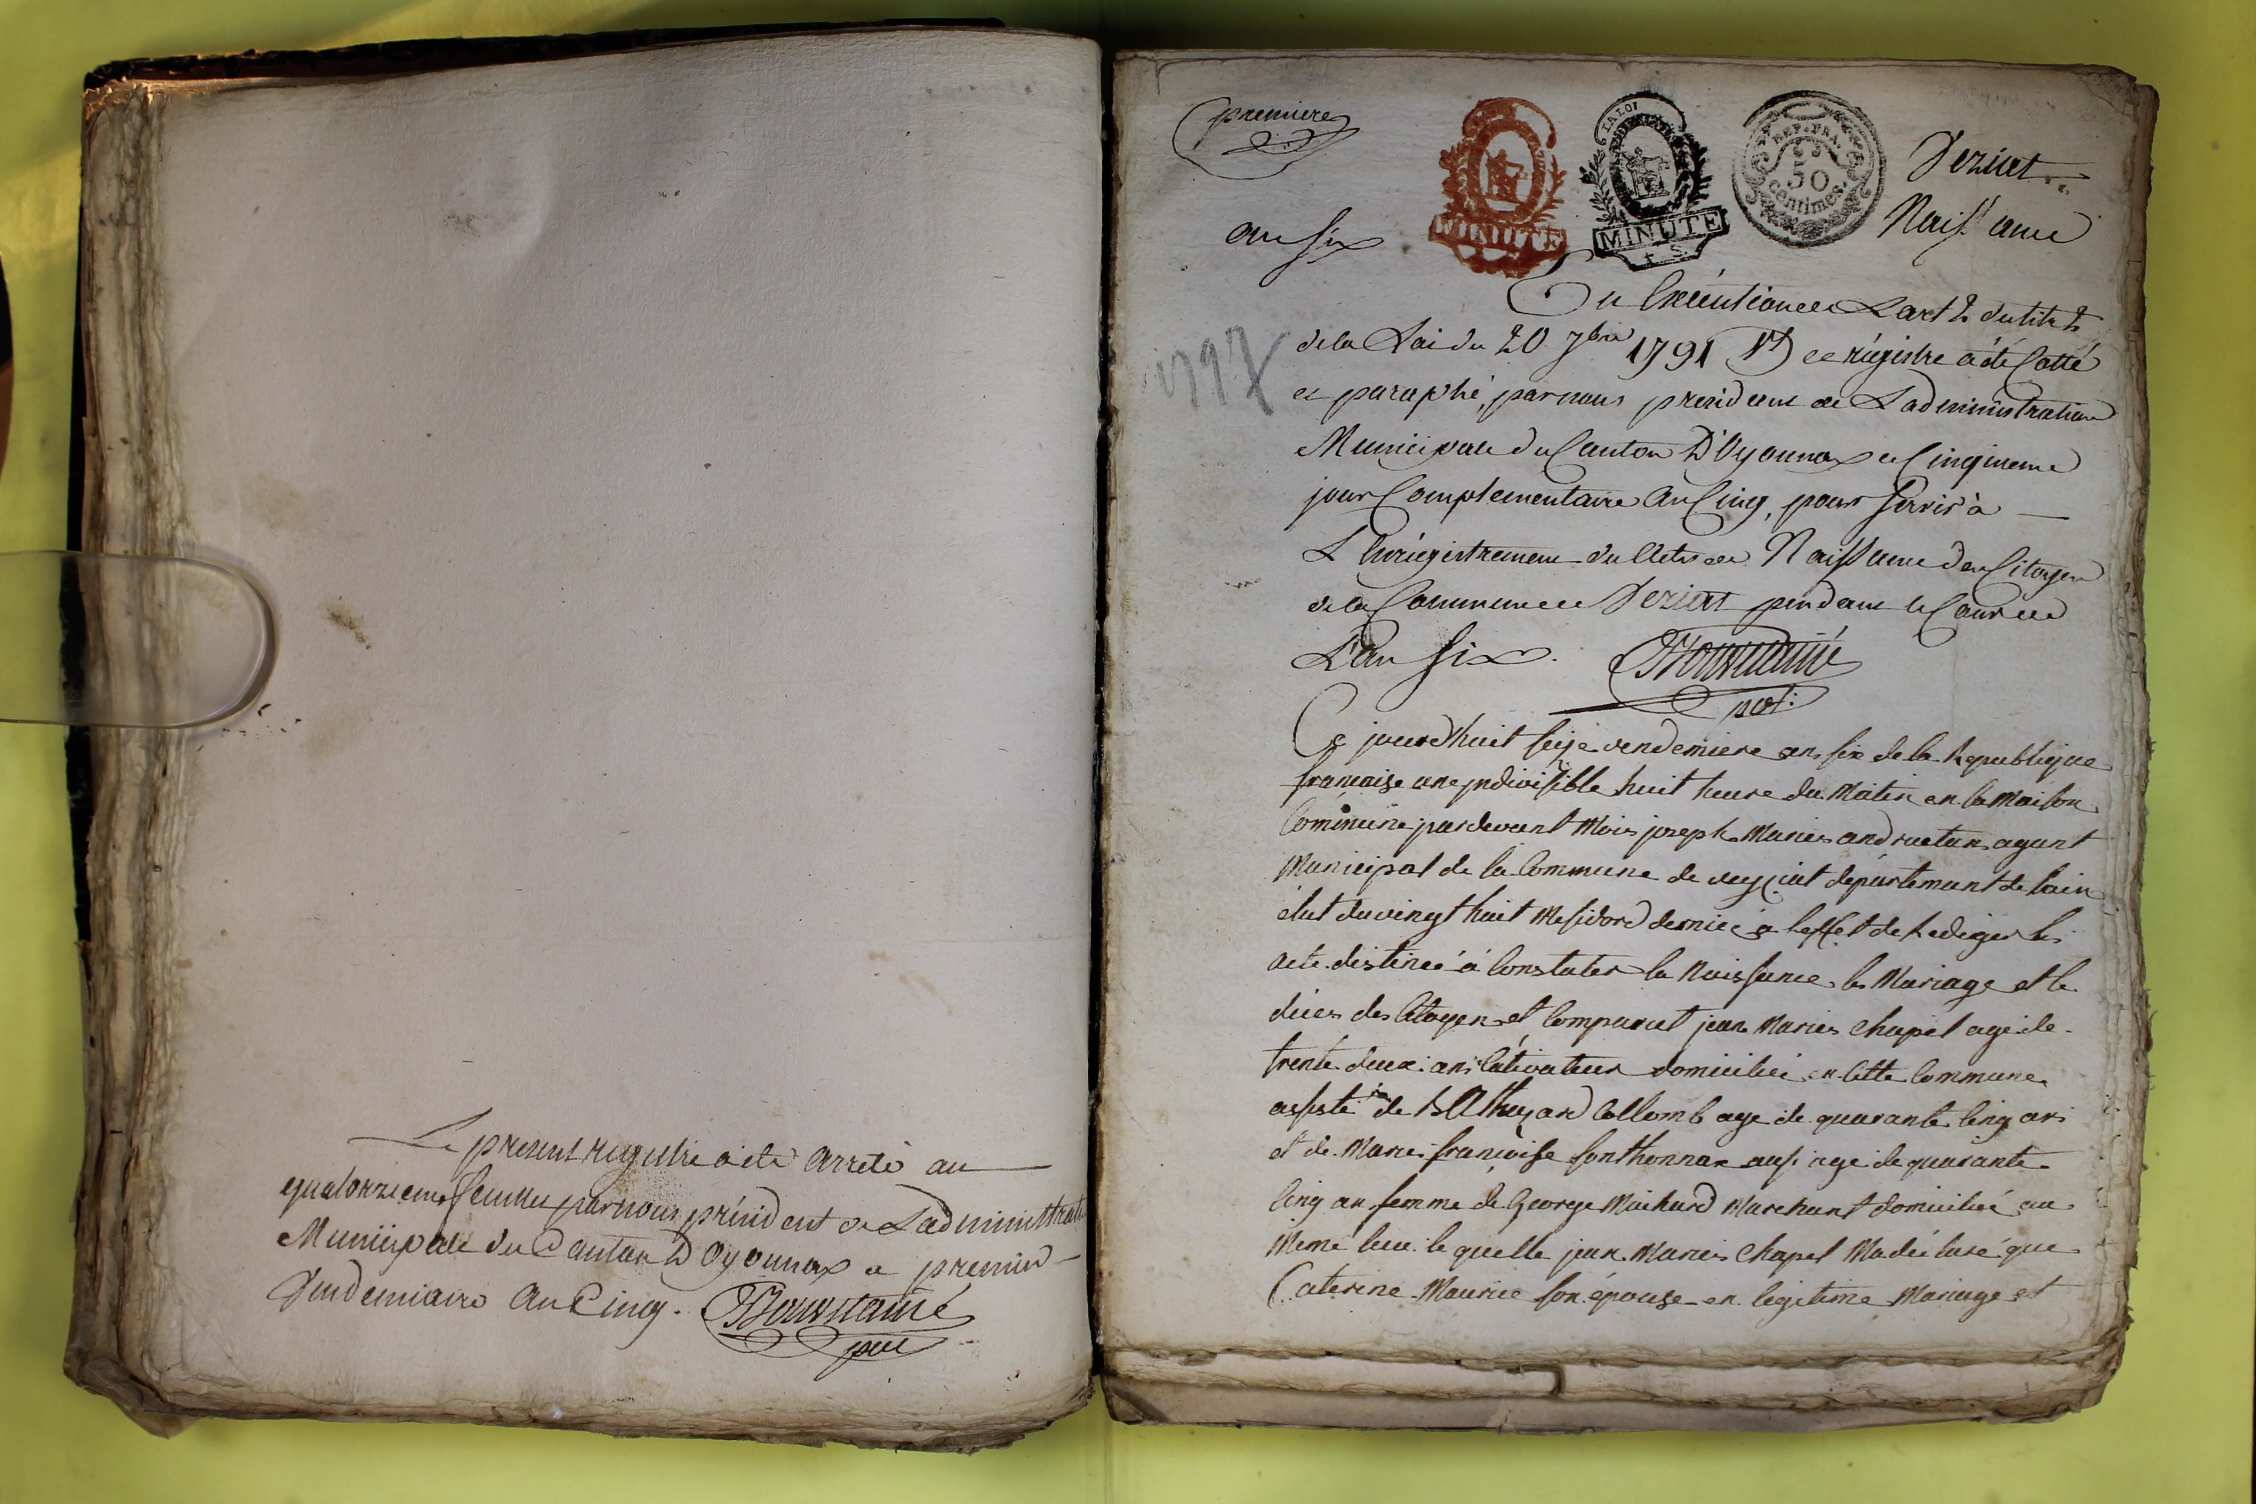 Le present registre a été arreté au
quatorzieme feuillet par nous président de L'administrati
Municipale du Canton D'Oyonnax le premier
Vendemiaire An Cinq.
premiere
LA LOI
MINUTE
MINUTE
REP. FRA.
50
centimes.
Veziat
Naissance
an Six
En Exécution de L'art 2 du titre 2
1797
de la Loi du 20 7bre 1791 ce régistre a été Cotté
et paraphé, par nous president de L'administration
Municipale du Canton D'Oyonnax le Cinquieme
jour Complementaire An Cinq, pour Servir à
L'Enrégistrement des Actes de Naissance des Citoyens
de la Commune de Veziat pendant le Cours de
L'an Six.
Ce jourdhuit seize vendemiere an six de la Republique
francaise une indivisible huit heure du Matin en la Maison
Commune pardevant Mois joseph Maries andruetan agant
Municipal de la Commune de veyziat départemant de lain
élut du vingt huit Mesidord dernié a leffet de Rediger les
acte destineé á Constater la Naissance les Mariage et le
décés des Citoyen et Comparut jean Maries Chapel age de
trente deux ans Cultivateur domiciliée en Cette Commune
assisté de Collomb age de quarante Cinq ans
et de Marie francoise fonthonnax ausi age de quarante
Cinq an femme de George Maichard Marchant domiciliée au
Meme lieu le quelle jean Maries Chapel Ma déclaré que
Caterine Maurice son épouse en legitime Mariage et